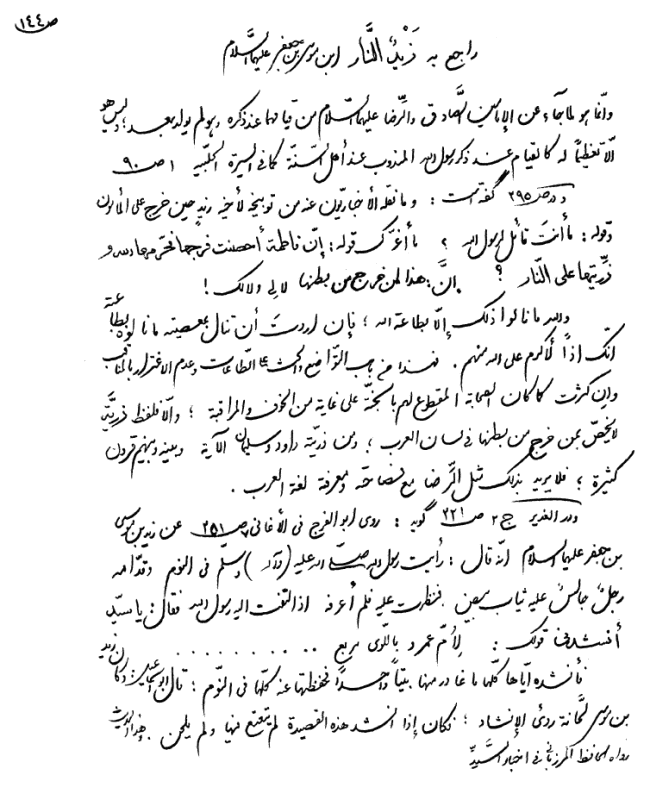 ص ١٤٤
راجع به زَیْدُ النَّار ابن موسی بن جعفر علیهما السلام
وإنّما هو لما جاء عن الإمامین الصَّادق والرِّضا علیهما السّلام من قیامهما عند ذکره وهو لم یولد بعد؛ ولیس هو
الّا تعظیماً له کالقیام عند ذکر رسول الله المندوب عند أهل السّنّة کما فی السیرة الحلبیه ١ ص ٩٠
ودر ص ٢٩٥ گفته است: وما نقله الأخباریّون عنه من توبیخه لأخیه زید حین خرج علی المأمون
وقوله: ما أنتَ قائل لرسول الله؟ ما أغرّک قوله: إنّ فاطمة أحصنت فرجها فحرّم
ذرّیّتها علی النّار؟ إنَّ هذا لمن خرج من بطنها لا لی ولا لک!
والله ما نالوا ذلک إلّا بطاعة الله؛ فإن أردتَ أن تنال بمعصیته ما نالوه بطاعته
إنّک إذاً لأکرم علی الله منهم. فهذا من باب التّواضع والحثّ علی الطّاعات وعدم الاغترار بالمناقب
وإن کثرت کما کان الصحابة المقطوع لهم بالجنّة علی غایة من الخوف والمراقبة؛ وإلّا فلفظ ذرّیّة
لا یخصّ بمن خرج من بطنها فی لسان العرب؛ ومن ذرّیّته داود وسلیمان الآیة وبینه وبینهم قرون
کثیرة؛ فلا یرید بذلک مثل الرِّضا مع فصاحته ومعرفة لغة العرب.
ودر الغدیر ج ٢ ص ٢٢١ گوید: روی أبو الفرج فی الأغانی ٧ ص ٢٥١ عن زید بن موسی
بن جعفر علیهما السلام أنّه قال: رأیت رسول الله صلّی الله علیه (وآله) وسلّم فی النوم وقدّامه
رجلٌ جالسٌ علیه ثیاب بیض فنظرت علیه فلم أعرفه إذ التفت الیه رسول الله فقال: یا سیّد
أنشدنی قولک: لِأُمِّ عمرو باللّوی مربع ..........
فأنشده ایّاها کلّها ما غادر منها بیتاً واحداً فحفظتها عنه کلّها فی النّوم؛ قال أبو اسماعیل: وکان زید
بن موسی لحّانة ردئ الإنشاد؛ فکان إذا أنشد هذه القصیدة لم یتتعتع فیها ولم یلحن. وهذا الحدیث
رواه الحافظ المرزبانی فی أخبار السَّیِّد